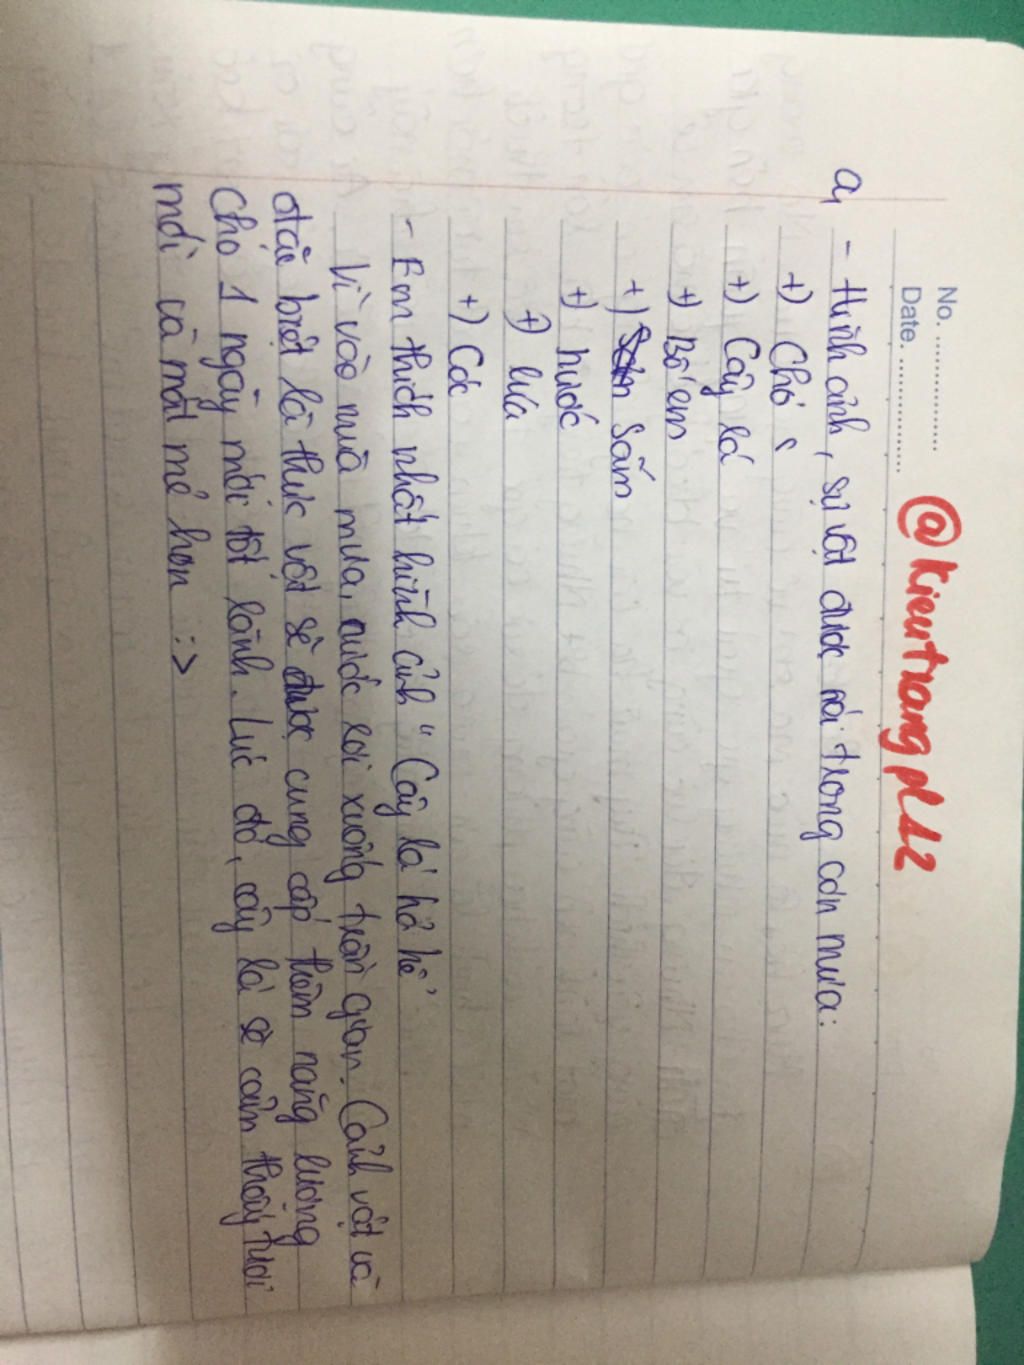 No. ..................
Date. ..................
@kieutrangpl12
a, - Hình ảnh, sự vật được nói trong cơn mưa:
+) Chó
+) Cây lá
+) Bố em
+) Sấm
+) nước
+) lúa
+) Cóc
- Em thích nhất hình ảnh " Cây lá hả hê "
Vì vào mùa mưa, nước rơi xuống trần gian. Cảnh vật và
đặc biệt là thực vật sẽ được cung cấp thêm năng lượng
cho 1 ngày mới tốt lành. Lúc đó, cây lá sẽ cảm thấy tươi
mới và mát mẻ hơn :>